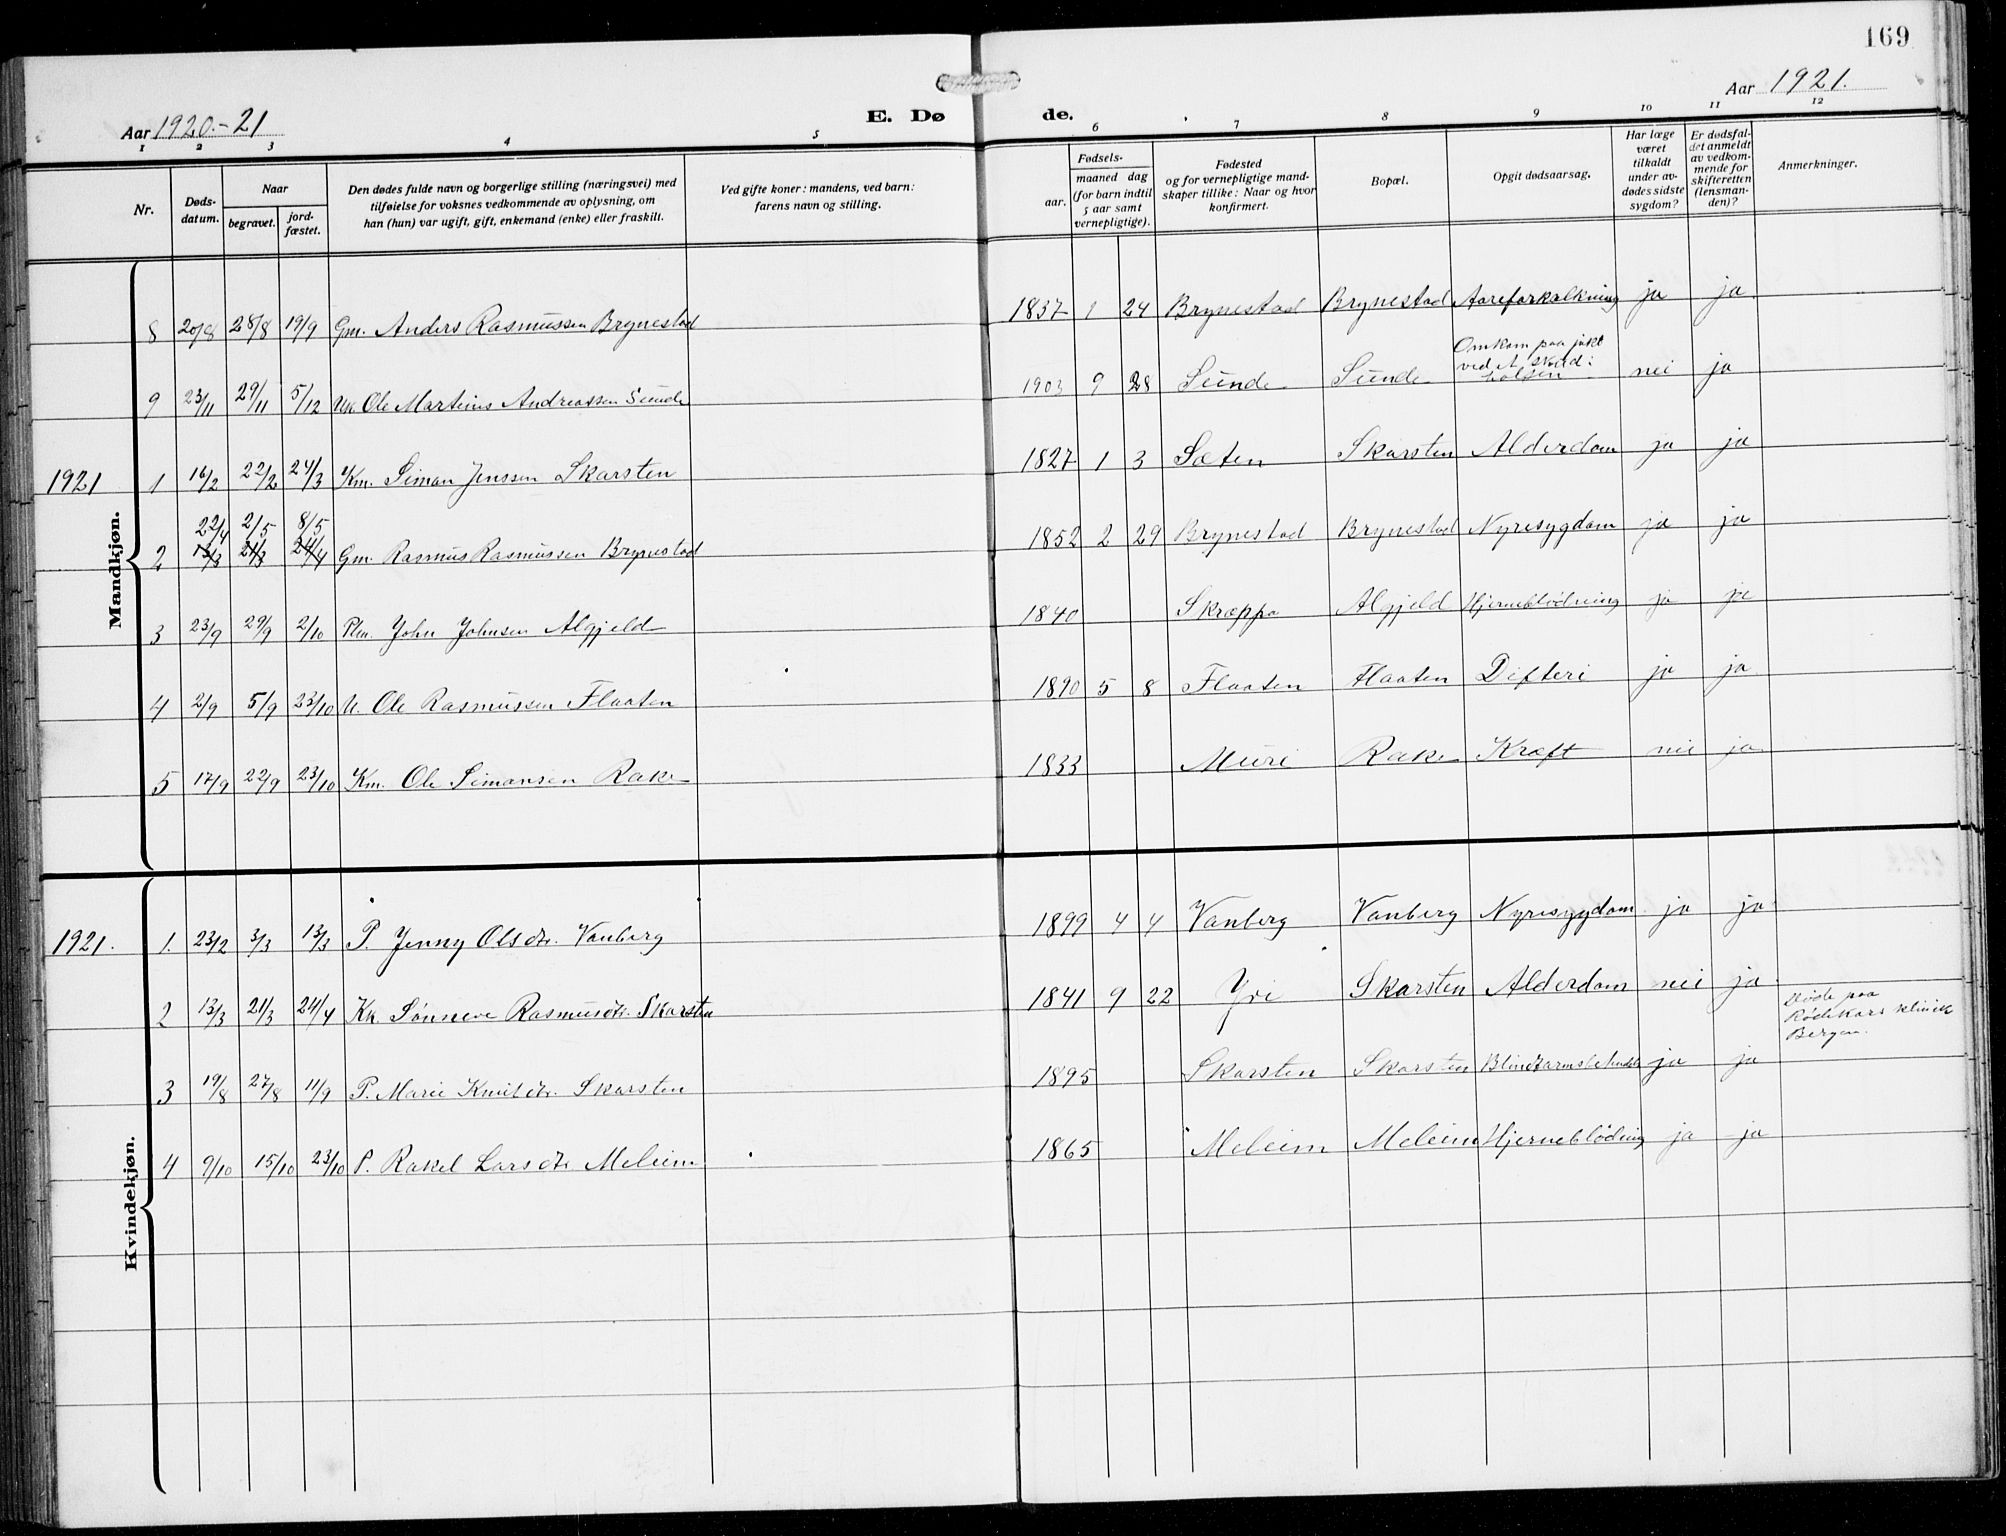 169
Aar 1920.-21
E. Dø de.
Aar 1921.
1 2 3 4 5 6 7 8 9 10 11 12
Nr.
Døds-
datum.
Naar
begravet.
jord-
fæstet.
Den dødes fulde navn og borgerlige stilling (næringsvei) med
tilføielse for voksnes vedkommende av oplysning, om
han (hun) var ugift, gift, enkemand (enke) eller fraskilt.
Ved gifte koner: mandens, ved barn:
farens navn og stilling.
Fødsels-
aar.
maaned dag
(for barn indtil
5 aar samt
vernepligtige).
Fødested
og for vernepligtige mand-
skaper tillike: Naar og hvor
konfirmert.
Bopæl.
Opgit dødsaarsag.
Har læge
været
tilkaldt
under av-
dødes sidste
sygdom?
Er dødsfal-
det anmeldt
av vedkom-
mende for
skifteretten
(lensman-
den)?
Anmerkninger.
Mandkjøn.
8 20/8 28/8 19/9 Gm. Anders Rasmussen Brynestad 1837 1 24 Brynestad Brynestad Aareforkalkning ja ja
9 23/11 29/11 5/12 Uk. Ole Martinus Andreassen Sunde 1903 9 28 Sunde Sunde Omkom paa jakt ved nei ja
1921 1 16/2 22/2 24/3 Km. Simon Jenssen Skarsten 1827 1 3 Sæten Skarsten Alderdom ja ja
22/4 2/5 8/5
2 13/3 21/3 24/4 Gm. Rasmus Rasmussen Brynestad 1852 2 29 Brynestad Brynestad Nyresygdom ja ja
3 23/9 29/9 2/10 Plm. John Johnsen Algjeld 1840 Skræppa Algjeld Hjerneblødning ja ja
4 2/9 5/9 23/10 U. Ole Rasmussen Flaaten 1890 5 8 Flaaten Flaaten Difteri ja ja
5 17/9 22/9 23/10 Km. Ole Simonsen Rake 1833 Muri Rake Kræft nei ja
Kvindekjøn.
1921. 1. 23/2 3/3 13/3 P. Jenny Olsdtr. Vanberg 1899 4 4 Vanberg Vanberg Nyresygdom ja ja
2 13/3 21/3 24/4 Kk. Sønneve Rasmusdtr. Skarsten 1841 9 22 Yri Skarsten Alderdom nei ja
3 19/8 27/8 11/9 P. Marie Knutdtr. Skarsten 1895 Skarsten Skarsten ja ja Døde paa
Rødekors klinik
Bergen.
4 9/10 15/10 23/10 P. Rakel Larsdtr Meleim 1865 Meleim Meleim Hjerneblødning ja ja